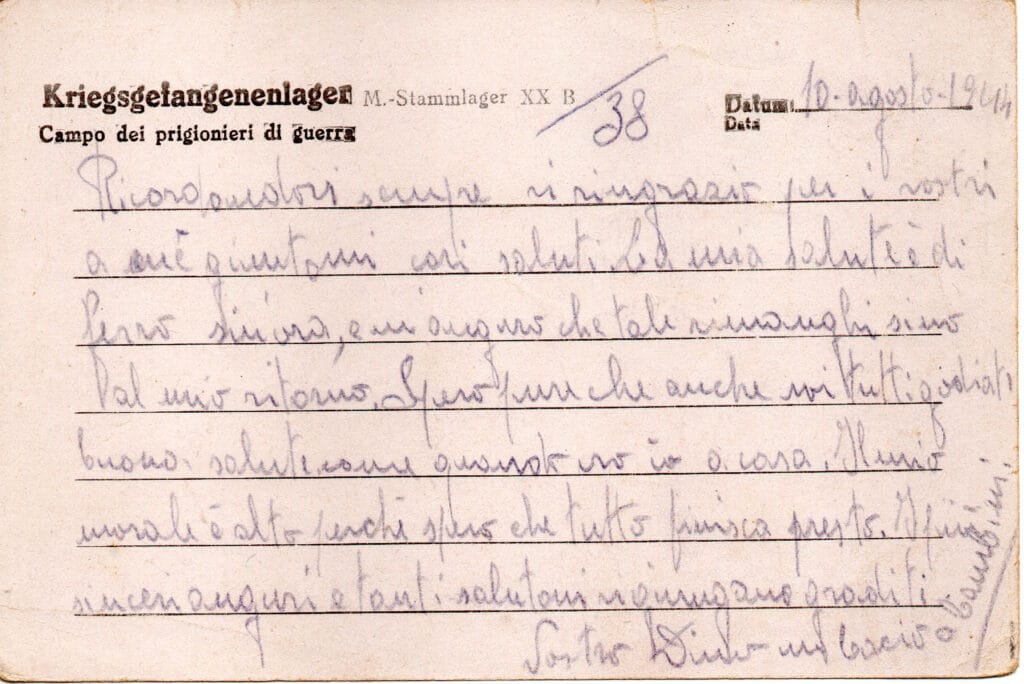 Kriegsgefangenenlager M.-Stammlager XX B 38 Datum: 10-agosto-1944
Campo dei prigionieri di guerra Data
Ricordandovi sempre vi ringrazio per i vostri
a me giuntomi cari saluti. La mia salute è di
ferro sin'ora, e mi auguro che tale rimanghi sino
al mio ritorno. Spero pure che anche voi tutti godiate
buona salute come quando ero io a casa. Il mio
morale è alto perchè spero che tutto finisca presto. I più
sinceri auguri e tanti salutoni vi giungano graditi
Vostro Dino un bacio a bambini.